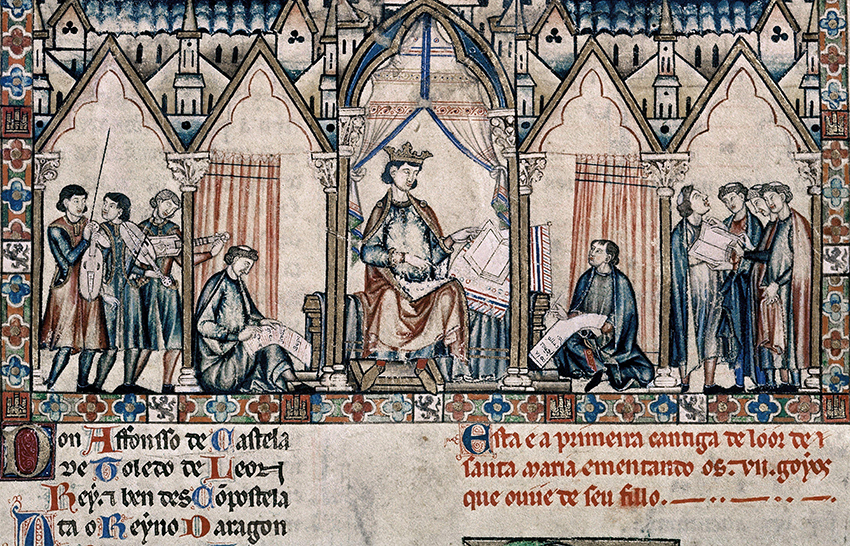 Don Affonsso de Castela
de Toledo de Leon
Rey. ⁊ ben des Cõpostela
Ata o Reyno Daragon
Esta e a primeira cantiga de loor de
santa maria ementando os .vii. goyos
que ouue de seu fillo.